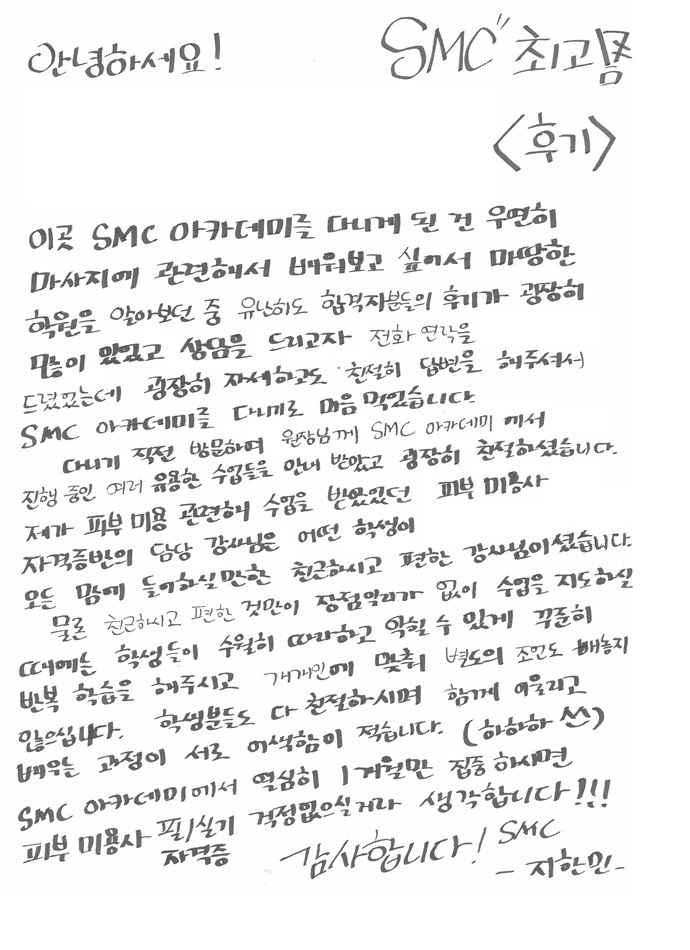 안녕하세요!
SMC" 최고봄
<후기>
이곳 SMC 아카데미를 다니게 된 건 우연히
마사지에 관련해서 배워보고 싶어서 마땅한
학원을 알아보던 중 유난히도 합격자분들의 후기가 굉장히
많이 있었고 상담을 드리고자 전화 연락을
드렸었는데 굉장히 자세하고도 친절히 답변을 해주셔서
SMC 아카데미를 다니기로 마음 먹었습니다.
다니기 직전 방문하며 원장님께 SMC 아카데미 에서
진행 중인 여러 유용한 수업들을 안내 받았고 굉장히 친절하셨습니다.
제가 피부 미용 관련해 수업을 받았었던 피부 미용사
자격증반의 담당 강사님은 어떤 학생이
오든 맘에 들어하실만한 친근하시고 편한 강사님이셨습니다.
물론 친근하시고 편한 것만이 장점이라기가 없이 수업을 지도하실
때에는 학생들이 수월히 따라하고 익힐 수 있게 꾸준히
반복 학습을 해주시고 개개인에 맞춰 별도의 조언도 빼놓지
않으십니다. 학생분들도 다 친절하시며 함께 어울리고
배우는 과정이 서로 어색함이 적습니다. (하하하 쓰)
SMC 아카데미에서 열심히 1개월만 집중 하시면
피부 미용사 필/실기 걱정없으실거라 생각합니다!!!
자격증
감사합니다! SMC
- 지한민 -